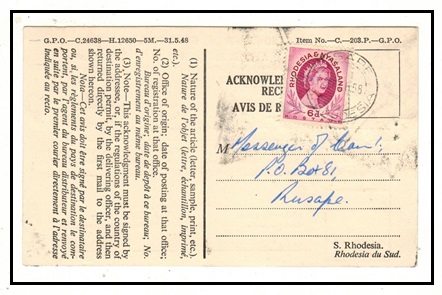 G.P.O.—C.24638—H.12650—5M.—31.5.48
Item No.—C.—203.P.—G.P.O.
(1) Nature of the article (letter, sample, print, etc.)
Nature de l'objet (lettre, échantillon, imprimé,
etc.)
(2) Office of origin; date of posting at that office;
No. of registration at that office.
Bureau d'origine; date de dépôt à ce bureau; No.
d'enregistrement au même bureau.
(3) Note—This acknowledgment must be signed by
the addressee, or, if the regulations of the country of
destination permit, by the delivering officer, and then
returned directly by the first mail to the address
shown hereon.
Nota—Cet avis doit être signé par le destinataire
ou, si, les règlements du pays de destination le com-
portent, par l'agent du bureau distributeur et renvoyé
en suite par le premier courier directement à l'adresse
indiquée au recto.
ACKNOWLE
REC
AVIS DE R
RHODESIA & NYASALAND
6d
M Messenger of Court,
P.O. Box 81
Rusape.
S. Rhodesia.
Rhodesia du Sud.